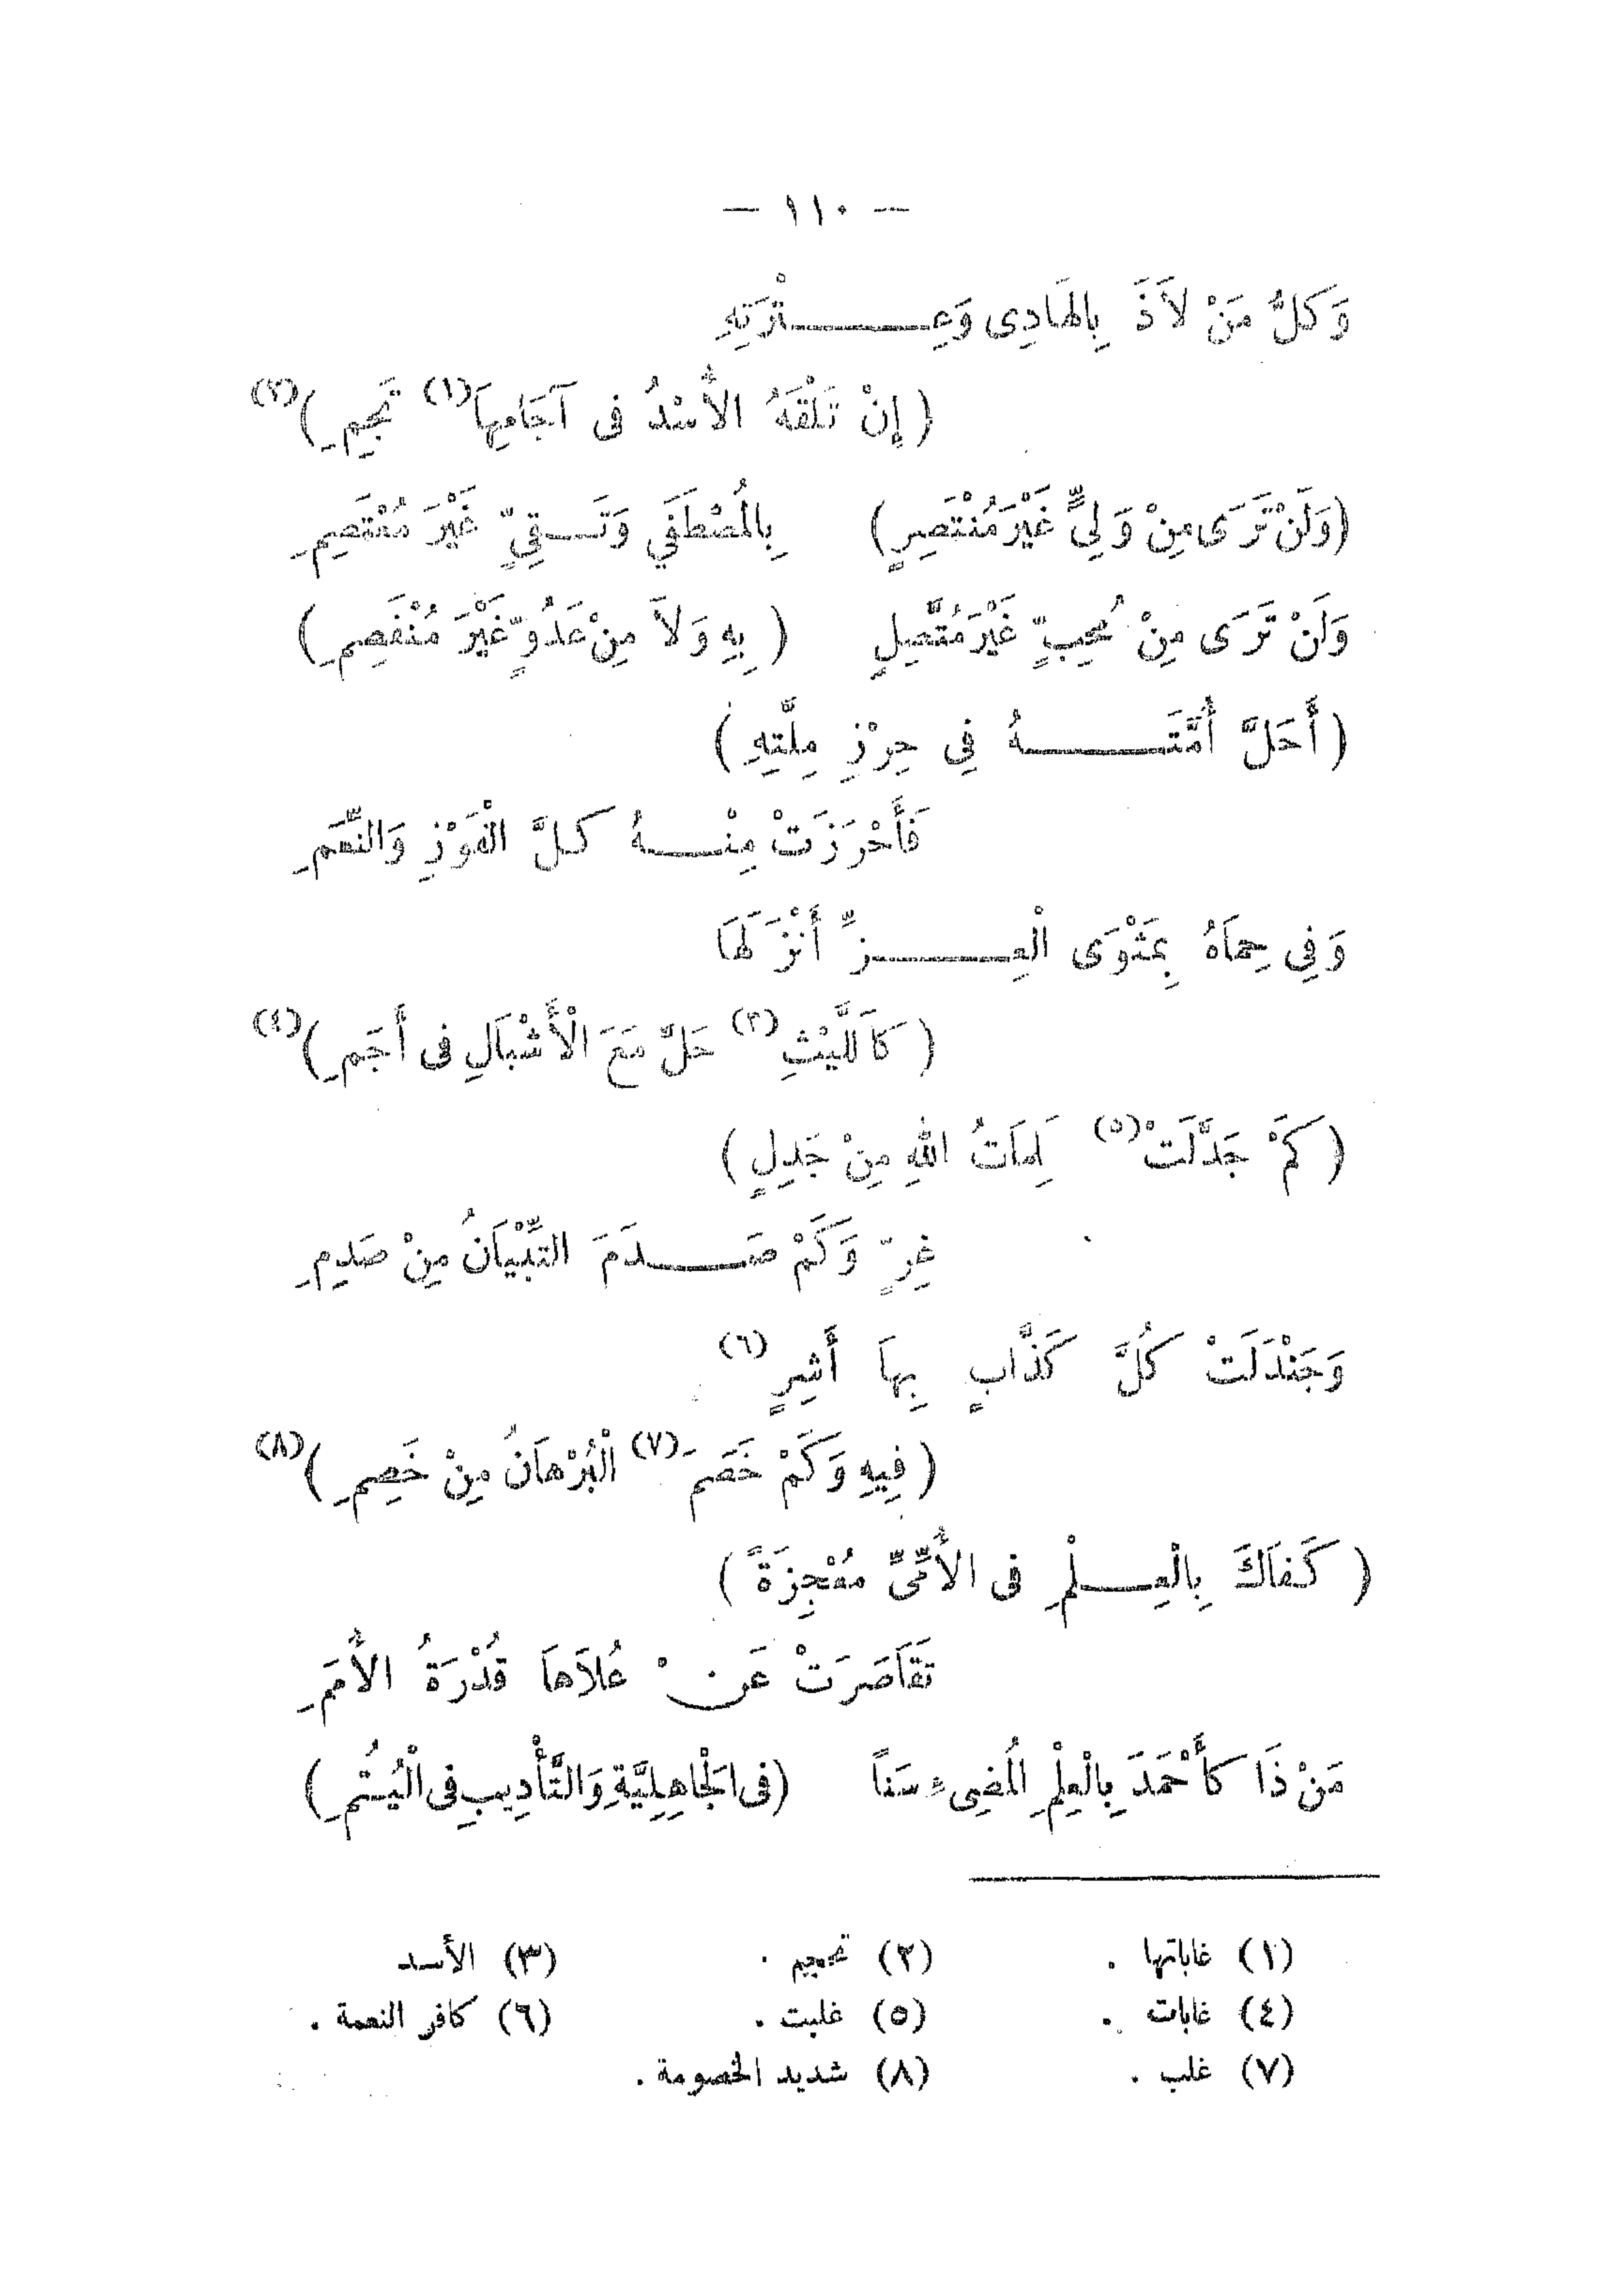 — ١١٠ —
وَكُلُّ مَنْ لاَذَ بِالهَادِى وَعِـــــتْرَتِهِ
( إِنْ تَلْقَهُ الأُسْدُ فى آجَامِهَا (١) تَجِمِ ) (٢)
(وَلَنْ تَرَى مِنْ وَلِىٍّ غَيْرَ مُنْتَصِرٍ) بِالمُصْطَفَي وَتَـــقِيٍّ غَيْرَ مُعْتَصِمِ
وَلَنْ تَرَى مِنْ مُحِبٍّ غَيْرَ مُتَّصِلٍ ( بِهِ وَلاَ مِنْ عَدُوٍّ غَيْرَ مُنْفَصِمِ )
( أَحَلَّ أُمَّتَـــــهُ فِي حِرْزِ مِلَّتِهِ )
فَأَحْرَزَتْ مِنْـــهُ كلَّ الْفَوْزِ وَالنِّعَمِ
وَفِي حِمَاهُ بِمَثْوَى الْعِـــــزِّ أَنْزَلَهَا
( كَاللَّيْثِ (٣) حَلَّ مَعَ الْأَشْبَالِ فى أَجَمِ ) (٤)
( كَمْ جَدَّلَتْ (٥) كَلِمَاتُ اللهِ مِنْ جَدِلٍ )
غِرٍّ وَكَمْ صَـــدَمَ التِّبْيَانُ مِنْ صَدِمِ
وَجَنْدَلَتْ كُلَّ كَذَّابٍ بِهَا أَشِرٍ (٦)
( فِيهِ وَكَمْ خَصَمَ (٧) الْبُرْهَانُ مِنْ خَصِمِ ) (٨)
( كَفَاكَ بِالْعِـــلْمِ فى الأُمِّىِّ مُعْجِزَةً )
تَقَاصَرَتْ عَنْ عُلاَهَا قُدْرَةُ الأُمَمِ
مَنْ ذَا كَأَحْمَدَ بِالْعِلْمِ الُمضِىءِ سَناً (فى الْجَاهِلِيَّةِ وَالتَّأْدِيبِ فِى الْيُتُمِ )
(١) غاباتها . (٢) تحجم . (٣) الأسد
(٤) غابات . (٥) غلبت . (٦) كافر النعمة .
(٧) غلب . (٨) شديد الخصومة .